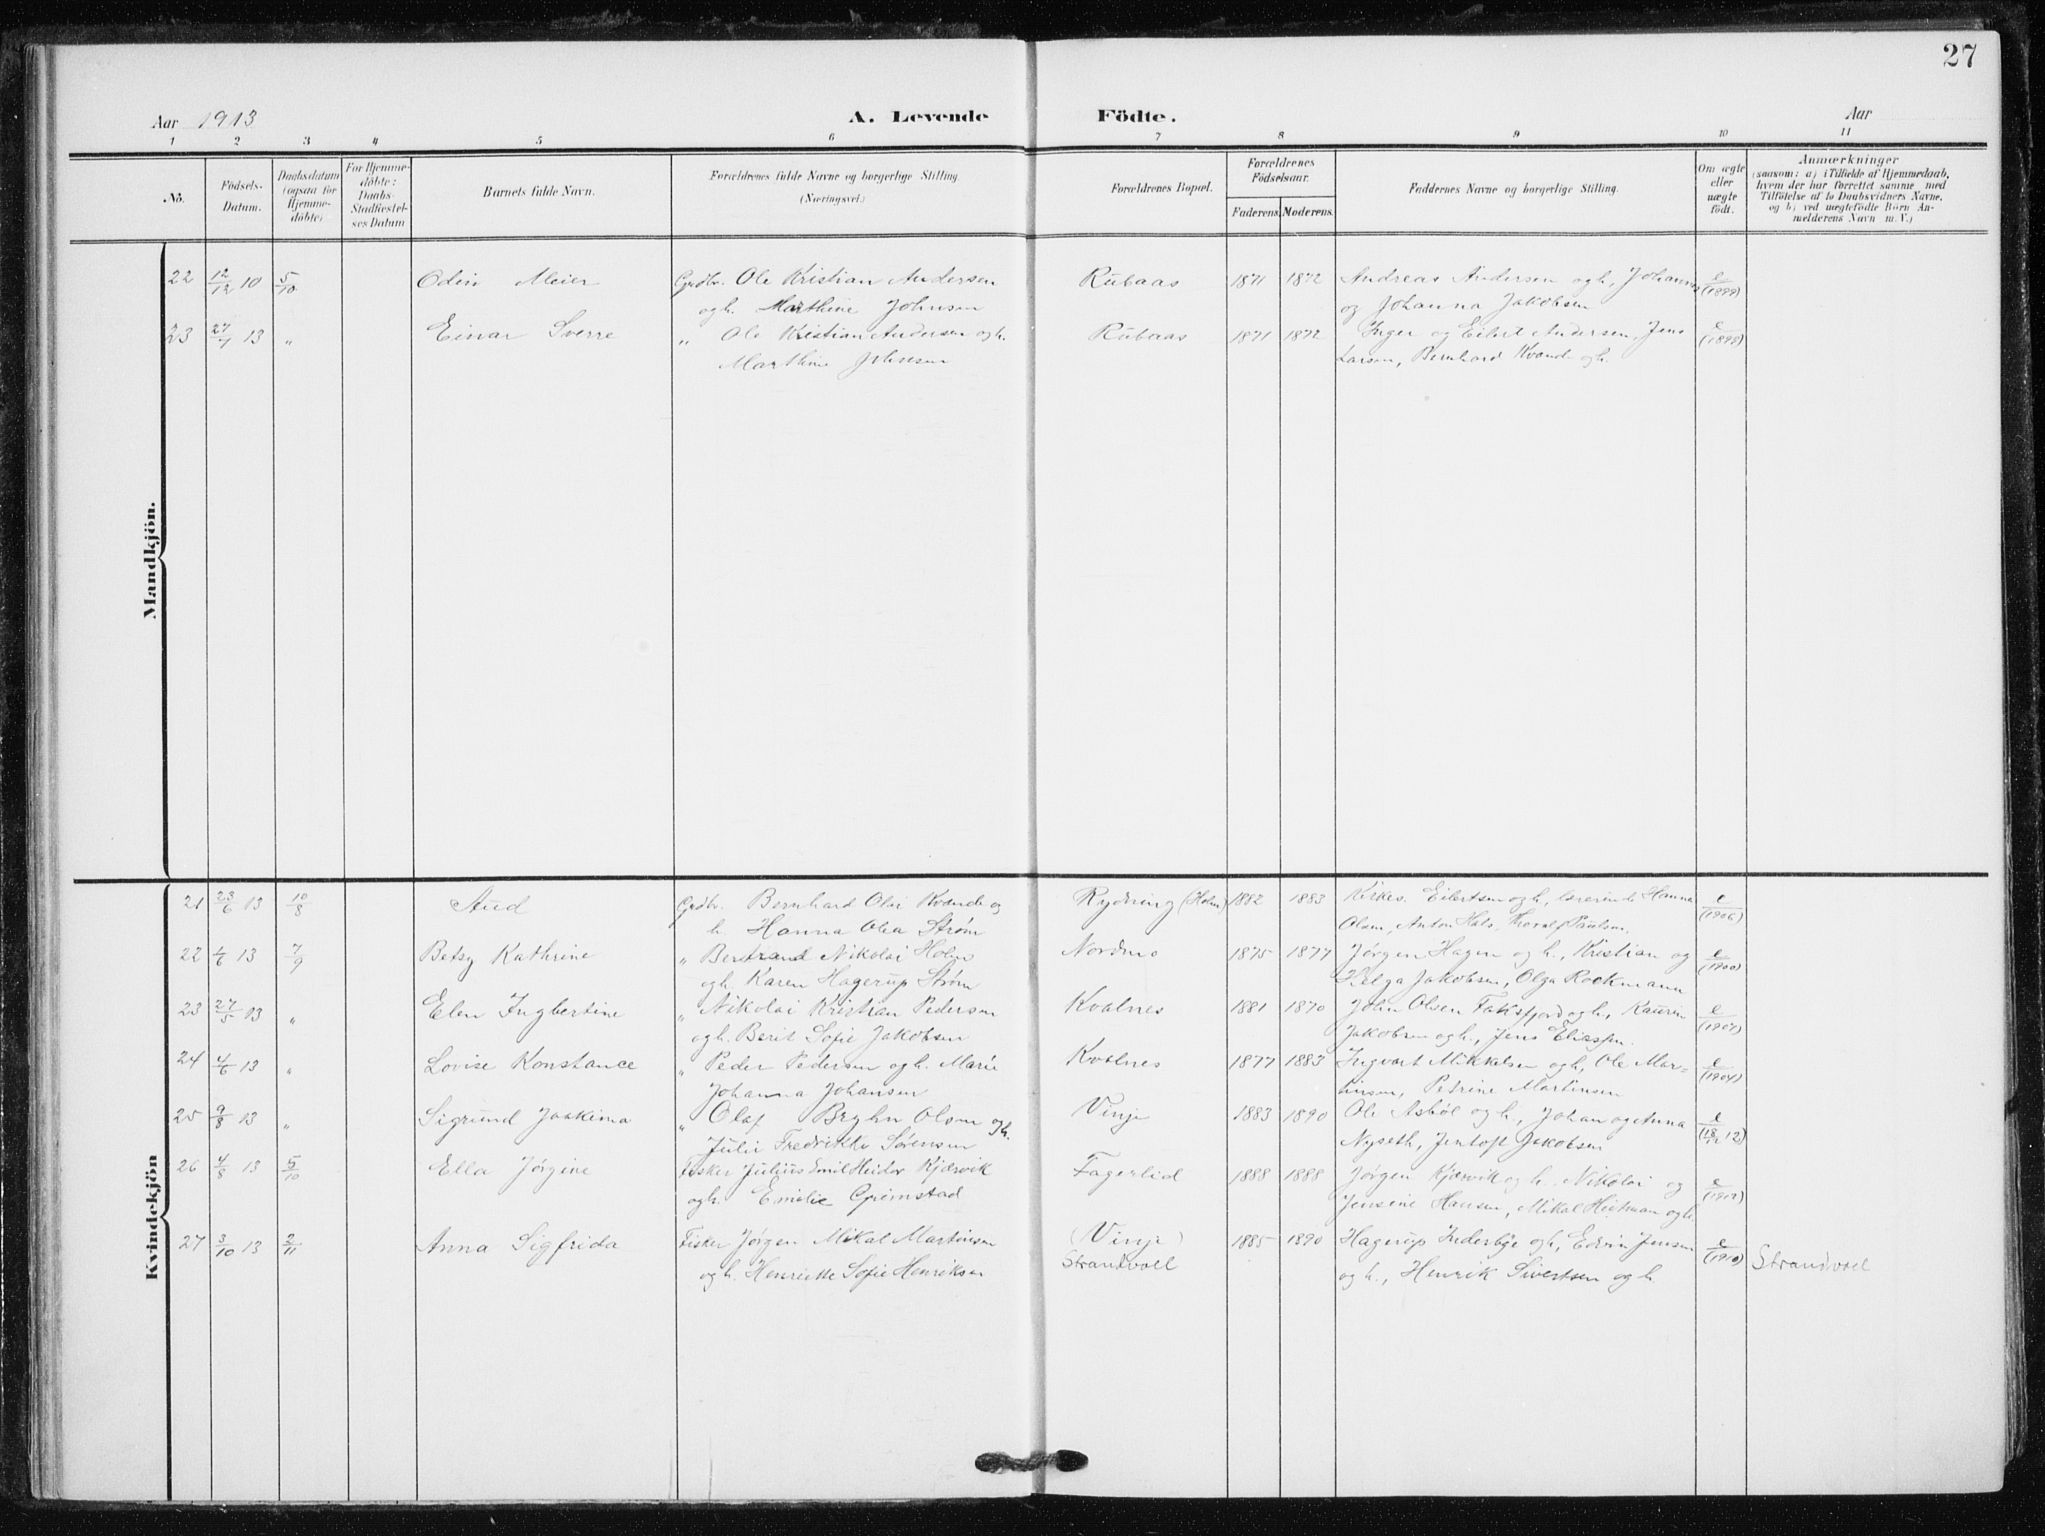 27
Aar 1913
A. Levende Födte.
Aar
1 2 3 4 5 6 7 8 9 10 11
No.
Födsels-
Datum.
Daabsdatum
(ogsaa for
Hjemme-
döbte)
For Hjemme-
döbte:
Daabs-
Stadfæstel-
ses Datum
Barnets fulde Navn.
Forældrenes fulde Navne og borgerlige Stilling
(Næringsvei.)
Forældrenes Bopæl.
Forældrenes
Födselsaar.
Faderens. Moderens.
Faddernes Navne og borgerlige Stilling.
Om ægte
eller
uægte
födt.
Anmærkninger
(saasom: a) i Tilfælde af Hjemmedaab,
hvem der har forrettet samme med
Tilföielse af to Daabsvidners Navne,
og b) ved uægtefödte Börn An-
melderens Navn m. V.)
Mandkjön.
22 12/12 10 5/10 Odin Meier Grdbr. Ole Kristian Andersen Rubaas 1871 1872 Andreas Andersen ogh., Johannes e
ogh. Marthine Johnsen og Johanna Jakobsen (1899)
23 27/7 13 „ Einar Sverre „ Ole Kristian Andersen ogh. Rubaas 1871 1872 Inger og Eilert Andersen, Jens e
Marthine Johnsen Larsen, Bernhard Kvande ogh. (1899)
Kvindekjön
21 23/6 13 10/8 Aud Grdbr. Bernhard Olai Kvande og Rydning (Holm) 1882 1883 Kirkes. Eilertsen ogh., lærerinde Hanna e
h. Hanna Olea Strøm Olsen, Anton Hals, Thoralf Paulsen. (1906)
22 6 13 7/9 Betsy Kathrine „ Bertrand Nikolai Holm Nordmo 1875 1877 Jørgen Hagen og h., Kristian og e
ogh. Karen Hagerup Strøm Helga Jakobsen, Olga Rockmann (1900)
23 27/5 13 „ Elen Ingbertine „ Nikolai Kristian Pedersen Kvalnes 1881 1870 John Olsen Faksfjord ogh., Kaurin e
ogh. Berit Sofie Jakobsen Jakobsen ogh., Jens Eliassen.
24 4/6 13 „ Lovise Konstance „ Peder Pedersen ogh. Marie Kvalnes 1877 1883 Ingvart Mikkelsen ogh., Ole Mar- e
Johanna Johansen tinsen, Petrine Martinsen (1904)
25 9/8 13 „ Sigrund Joakima „ Olaf Bryhn Olsen ogh. Vinje 1883 1890 Ole Asbøl og h., Johan og Anna e
Julie Fredrikke Sørensen Nyseth, Jentoft Jakobsen
26 4/8 13 5/10 Ella Jørgine Fisker Julius Emil Heidar Kjærvik Fagerlid 1888 1888 Jørgen Kjærvik og h. Nikolai og e
ogh. Emelie Grimstad Jensine Hansen, Mikal Heitman ogh. (1912)
27 3/10 13 2/11 Anna Sigfrida Fisker Jørgen Mikal Martinsen (Vinje) 1885 1890 Hagerup Inderbye ogh., Edvin Jensen e
ogh. Henriette Sofie Henriksen Strandvoll og h., Henrik Sivertsen og h. (1910) Strandvoll